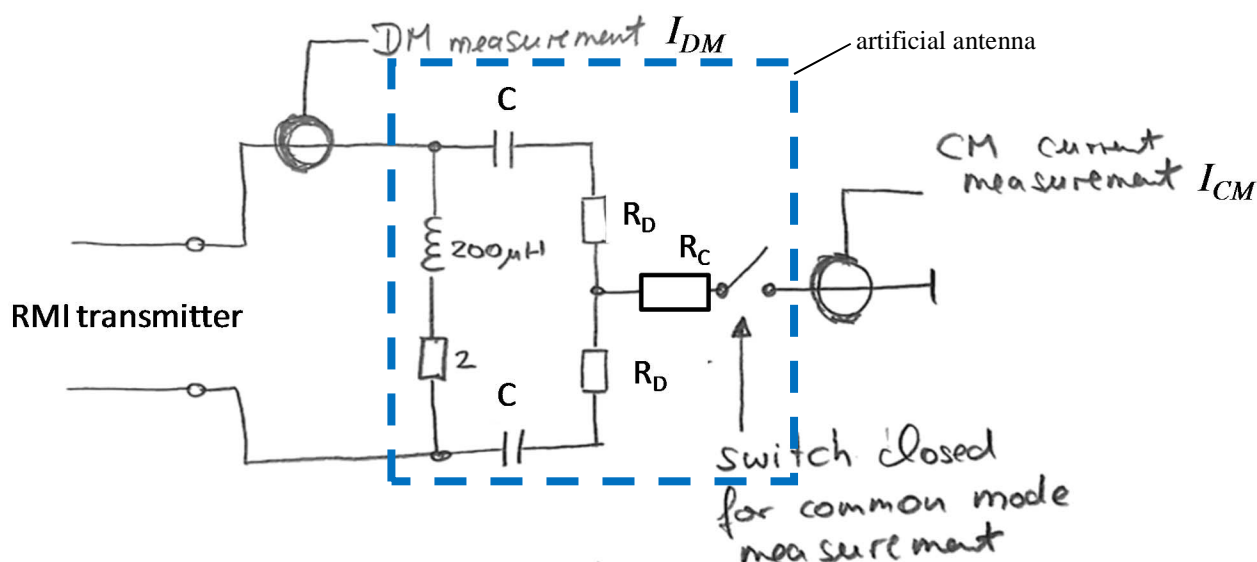 DM measurement I_DM
artificial antenna
C
CM current
measurement I_CM
R_D
200μH
R_C
RMI transmitter
2
R_D
C
switch closed
for common mode
measurement